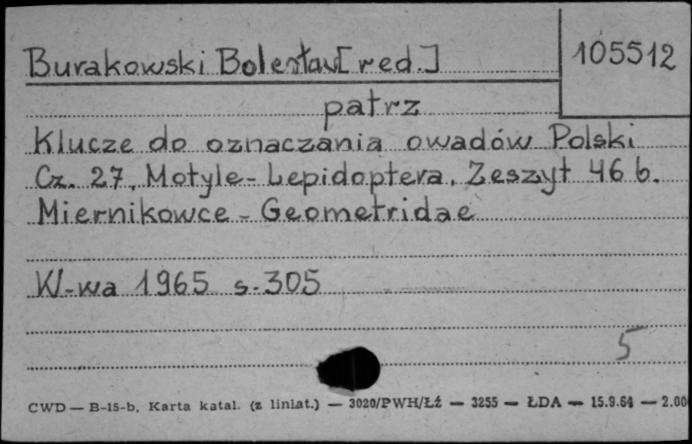 Burakowski Bolesław [red.] 105512
patrz
Klucze do oznaczania owadów Polski
Cz. 27, Motyle - Lepidoptera. Zeszyt 46 b.
Miernikowce - Geometridae
W-wa 1965 s. 305
5
CWD — B-15-b. Karta katal. (z liniat.) — 3020/PWH/Łź — 3255 — ŁDA — 15.9.64 — 2.00